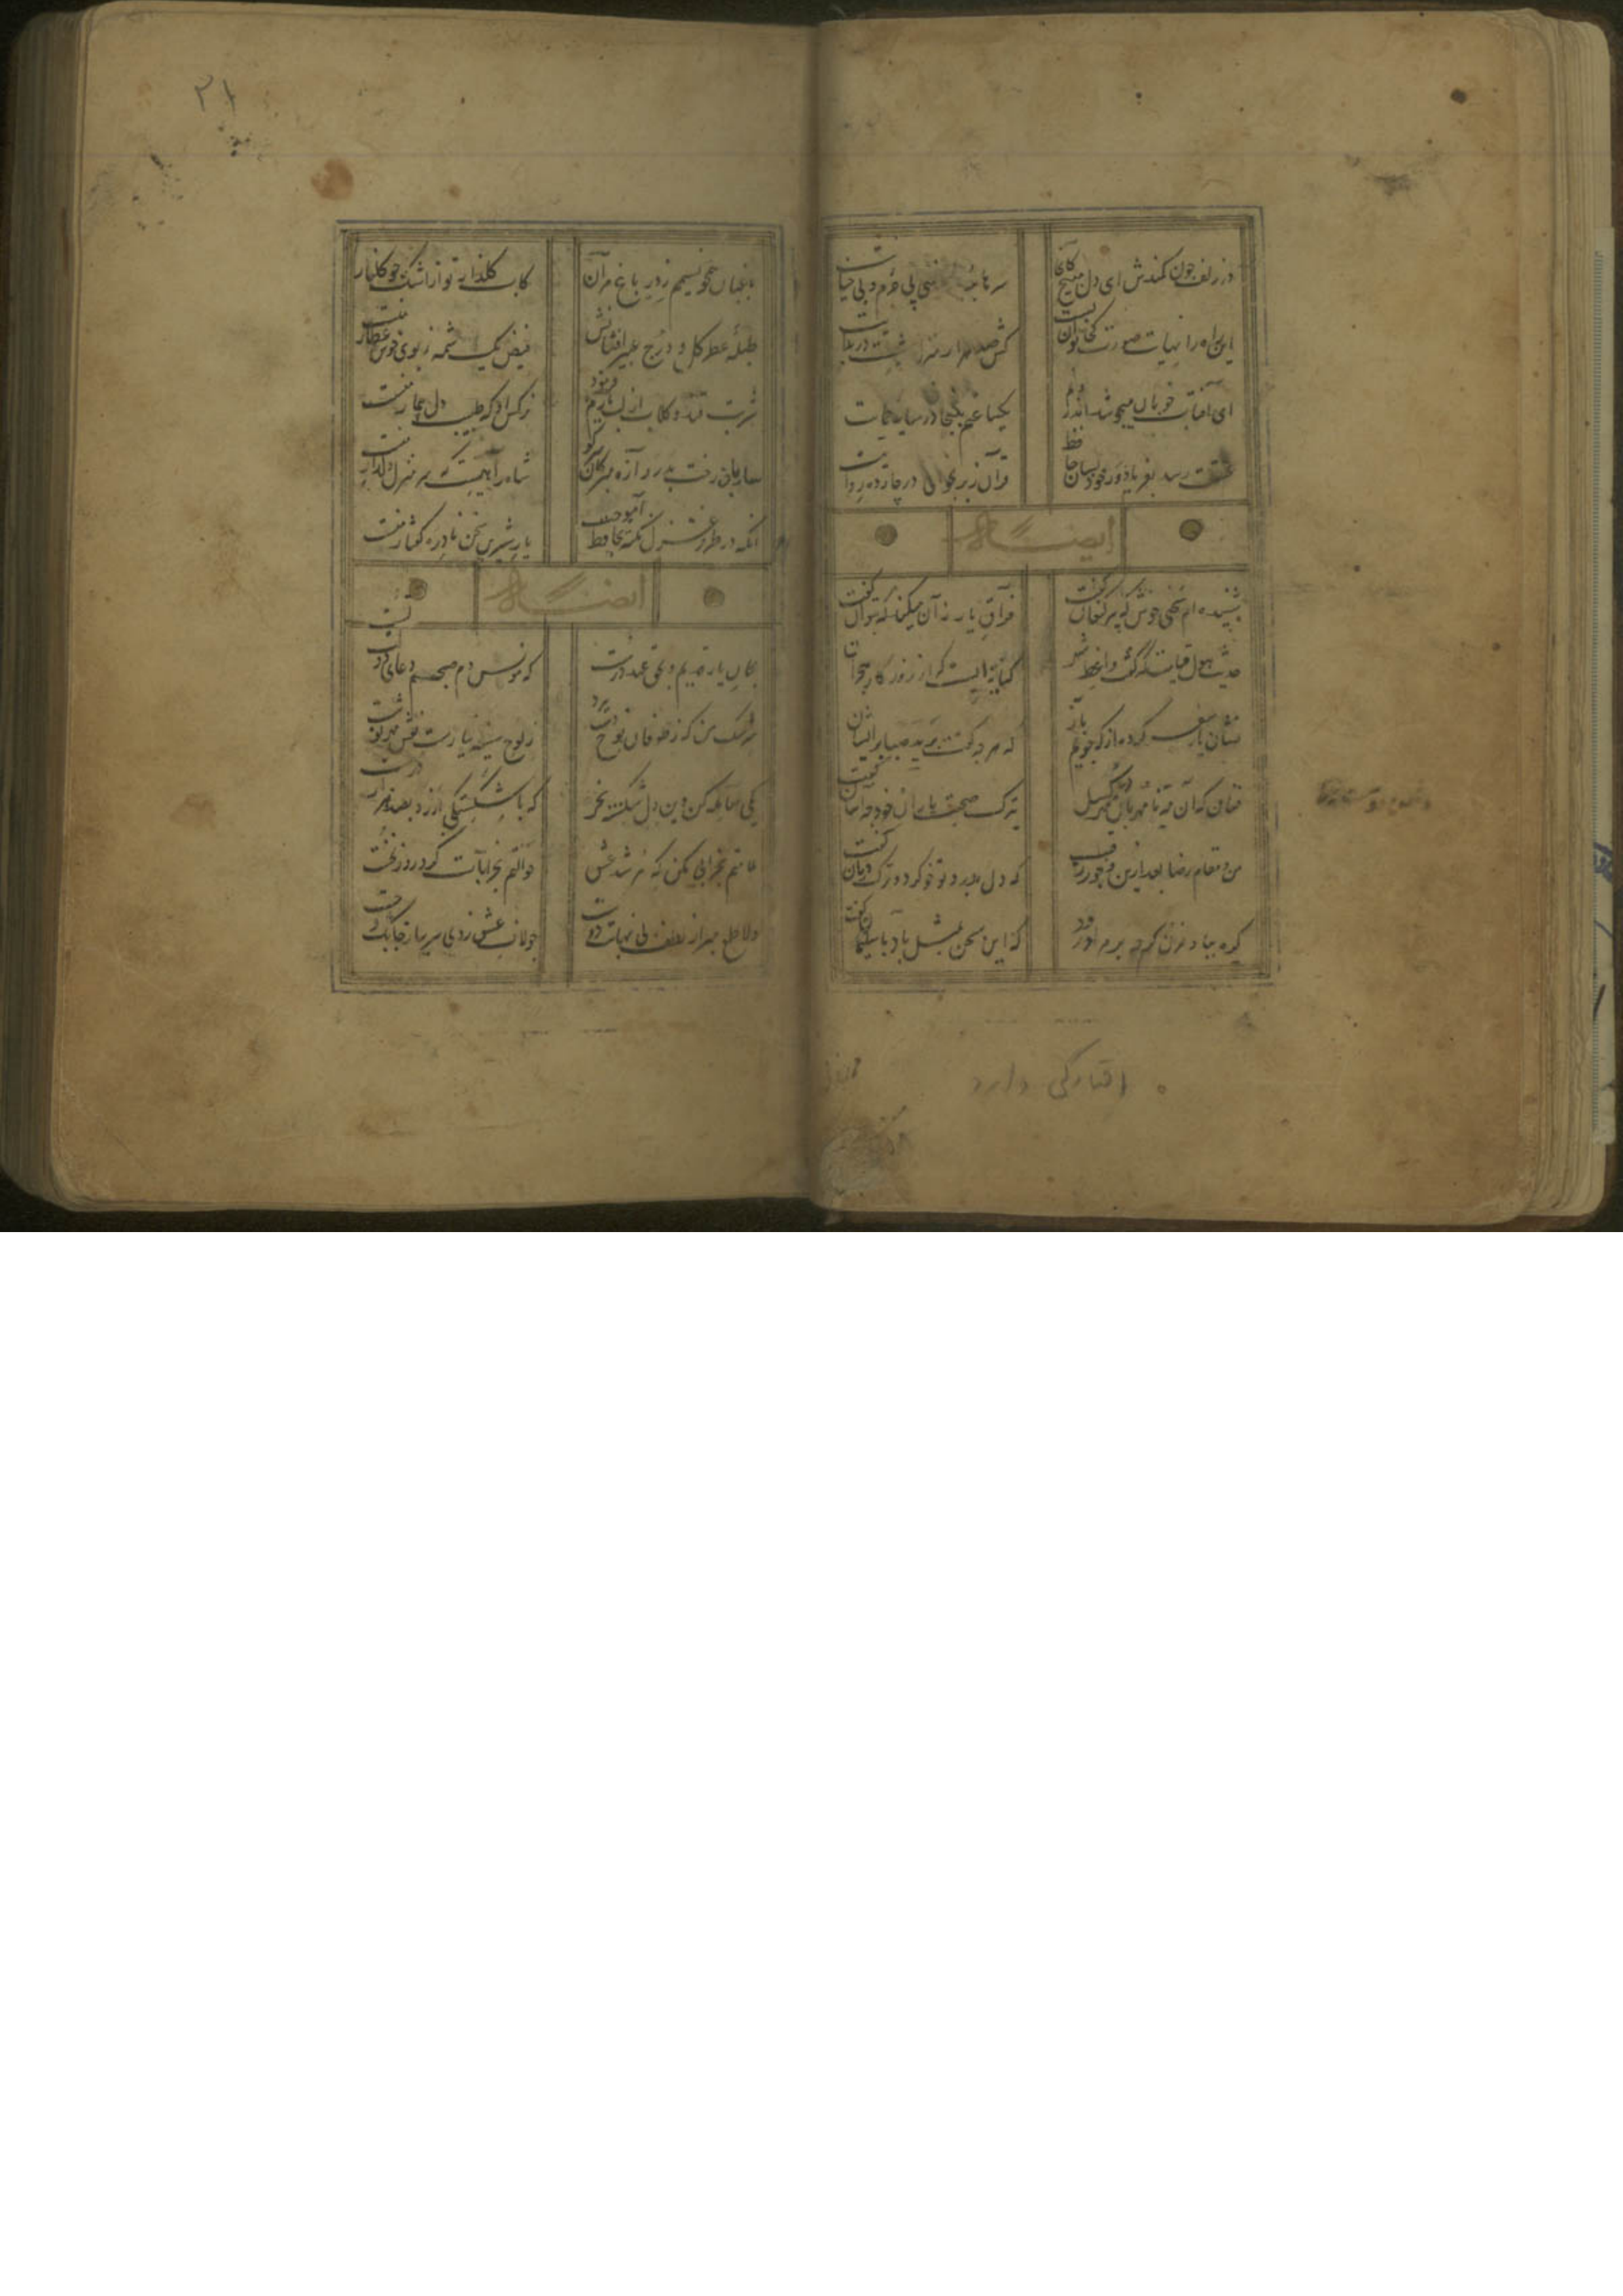 در زلف چون کمندش ای دل مپیچ کانجا سرها بینی بی جرم و بی جنایت
این راه را نهایت صورت کجا توان بست کش صد هزار منزل بیشست در بدایت
ای آفتاب خوبان میجوشد اندرونم یکساعتم بگنجان در سایه عنایت
عشقت رسد بفریاد ور خود بسان حافظ قرآن زبر بخوانی در چارده روایت
ایضاً له
شنیده ام سخنی خوش که پیر کنعان گفت فراق یار نه آن میکند که بتوان گفت
حدیث هول قیامت که گفت واعظ شهر کنایه ایست که از روزگار هجران گفت
نشان یار سفر کرده از که جویم باز که هر چه گفت برید صبا پریشان گفت
فغان که آن مه نامهربان مهرگسل بترک صحبت یاران خود چه آسان گفت
من و مقام رضا بعد ازین و جور رقیب که دل بدرد تو خو کرد و ترک درمان گفت
گره بباد مزن گرچه بر مراد رود که این سخن بمثل باد با سلیمان گفت
افتادگی دارد
باغبان همچو نسیمم ز در باغ مران کاب گلزار تو از اشک چو گلنار منست
طبلهٔ عطر گل و درج عبیر افشانش فیض یک شمه ز بوی خوش عطار منست
شربت قند و گلاب از لب یارم فرمود نرگس او که طبیب دل بیمار منست
ساربان رخت بدروازه مبر کان سر کو شاه راهیست که سر منزل دلدار منست
آنکه در طرز غزل نکته بحافظ آموخت یار شیرین سخن نادره گفتار منست
ایضاً له
بجان یار قدیم و بحق عهد درست که مونس دم صبحم دعای دولت تست
سرشک من که ز طوفان نوح دست برد ز لوح سینه نیارست نقش مهر تو شست
معامله کن وین دل شکسته بخر که با شکستگی ارزد بصد هزار درست
ملامتم بخرابی مکن که مرشد عشق حوالتم بخرابات کرد روز نخست
دلا طمع مبر از لطف بی نهایت دوست چو لاف عشق زدی سر بباز چابک و چست